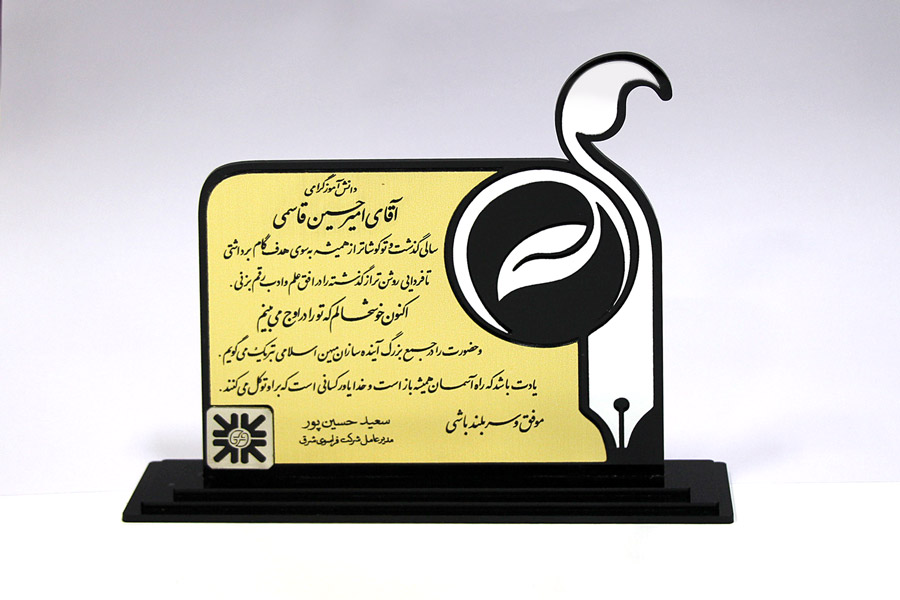 دانش آموز گرامی
آقای امیرحسین قاسمی
سالی گذشت و تو کوشاتر از همیشه به سوی هدف گام برداشتی
تا فردایی روشن تر از گذشته را در افق علم و ادب رقم بزنی .
اکنون خوشحالم که تو را در اوج می بینم
و حضورت را در جمع بزرگ آینده سازان میهن اسلامی تبریک می گویم .
یادت باشد که راه آسمان همیشه باز است و خدا یاور کسانی است که بر او توکل می کنند .
موفق و سربلند باشی
سعید حسین پور
مدیرعامل شرکت فرآوری شرق